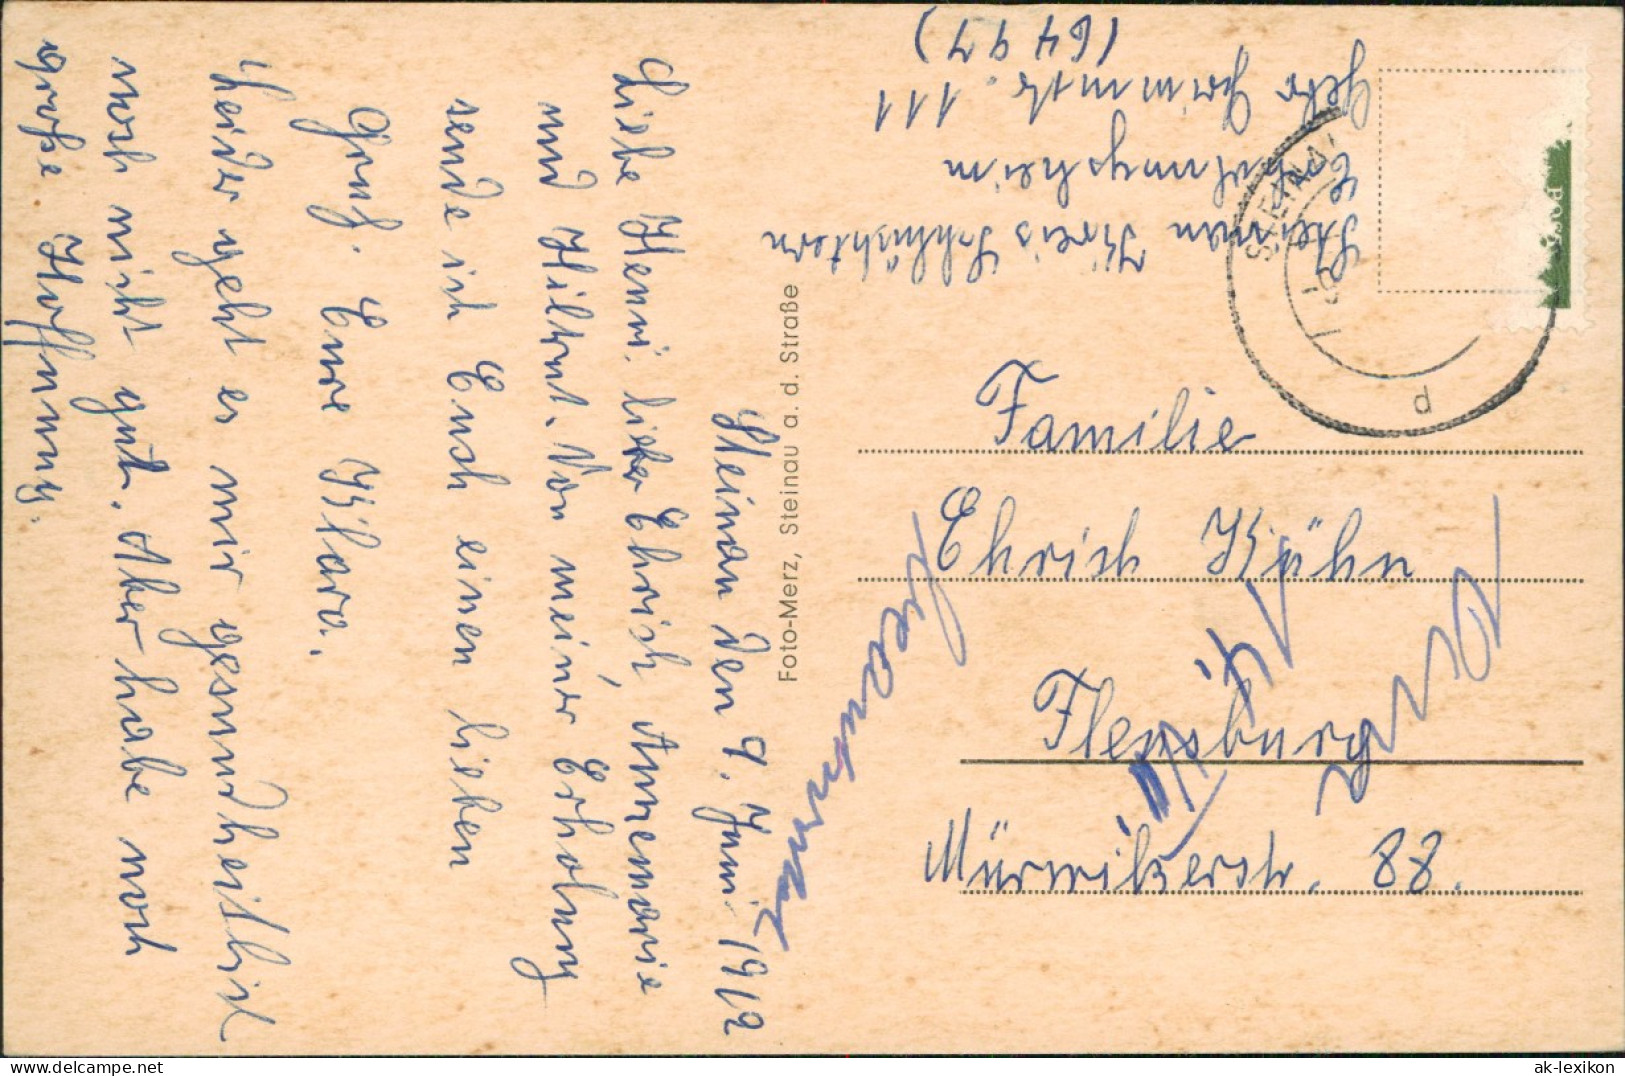 Steinau den 9. Juni 1912
Liebe Henni lieber Ehrich, Annemarie
und Hiltrut. Von meiner Erholung
sende ich Euch einen lieben
Gruß. Eure Klara.
Leider geht es mir gesundheitlich
noch nicht gut. Aber habe noch
große Hoffnung.
Foto-Merz, Steinau a. d. Straße
Steinau Kreis Schlüchtern
Erholungsheim
111
(6497)
STEINAU
d
POST
Familie
Ehrich Kühn
Flensburg
Mürwikerstr. 88.
ak-lexikon
https://www.delcampe.net